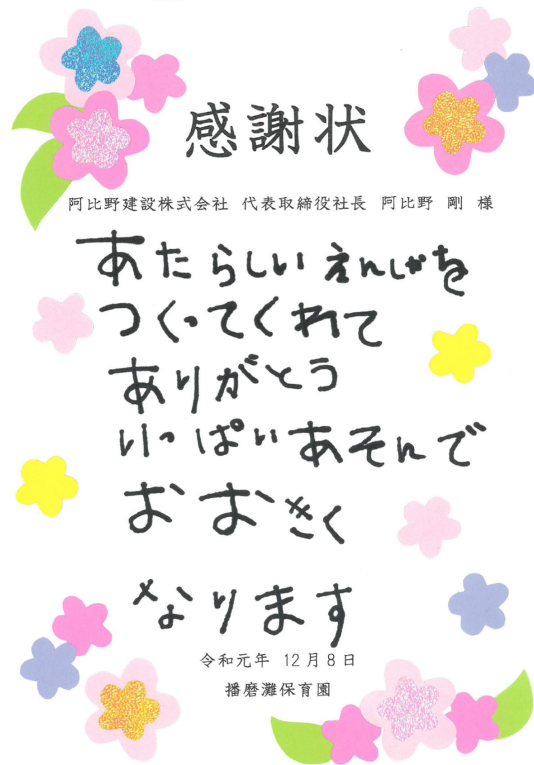 感謝状
阿比野建設株式会社 代表取締役社長 阿比野 剛 様
あたらしい えんしゃを
つくってくれて
ありがとう
いっぱいあそんで
おおきく
なります
令和元年 12月8日
播磨灘保育園